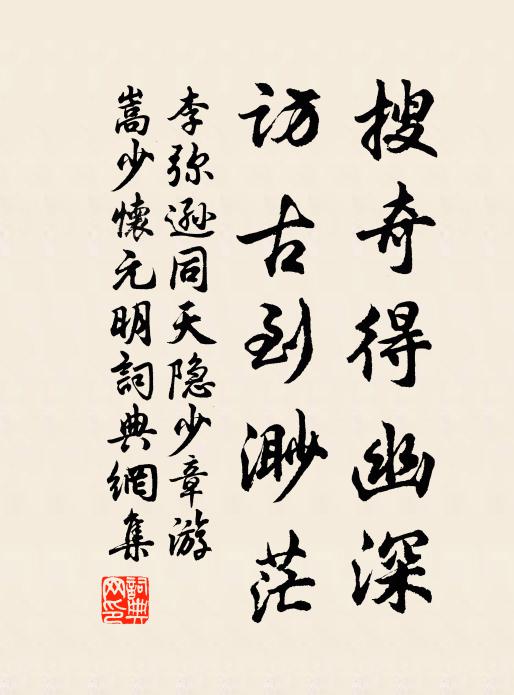 搜奇得幽深
访古到渺茫
李弥逊同天隐少章游
嵩少懷元明詞典網集
詞典網印